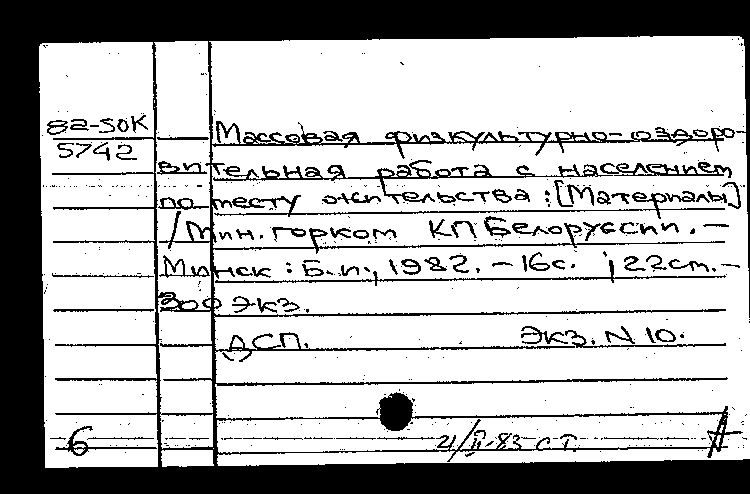 82-50К
5742
Массовая физкультурно-оздоро-
вительная работа с населением
по месту жительства : [Материалы]
/ Мин. горком КП Белоруссии. –
Минск : Б. и., 1982. – 16с. ; 22см. –
300 экз.
ДСП. Экз. N 10.
6 21/II-83 с т.